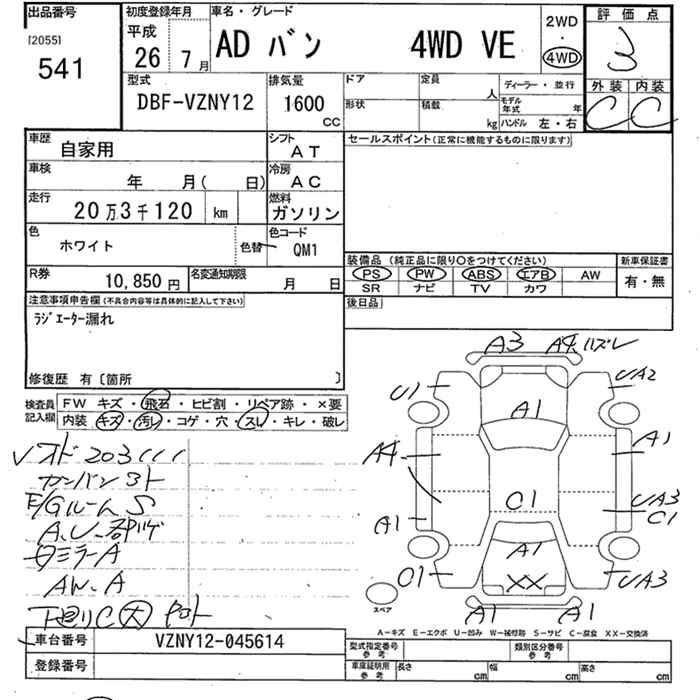 出品番号
[2055]
541
初度登録年月
平成
26 7月
車名・グレード
AD バン 4WD VE
2WD
・
4WD
評価点
3
外装 内装
C C
型式
DBF-VZNY12
排気量
1600
CC
ドア
定員
人
形状
積載
kg
ディーラー・並行
モデル年式 年
ハンドル 左・右
車歴
自家用
シフト
AT
車検
年 月( 日)
冷房
AC
走行
20万3千120 km
燃料
ガソリン
色
ホワイト
色替
色コード
QM1
R券
10,850円
名変通知期限
月 日
セールスポイント(正常に機能するものに限ります)
装備品 (純正品に限り○をつけてください)
新車保証書
PS PW ABS エアB AW
SR ナビ TV カワ
有・無
後日品
注意事項申告欄(不具合内容等は具体的に記入して下さい)
ラジエーター漏れ
修復歴 有〔箇所 〕
検査員記入欄
FW キズ・飛石・ヒビ割・リペア跡・×要
内装 キズ・汚レ・コゲ・穴・スレ・キレ・破レ
ソオド 203111
E/Gルーム S
ミラーA
AW.A
下回りC 大
A3 A4 ハズレ
U1 UA2
A1
A4 A1
C1 UA3
A1 C1
A1
C1 XX UA3
A1 A1
スペア
A－キズ E－エクボ U－凹み W－補修跡 S－サビ C－腐食 XX－交換済
車台番号
VZNY12-045614
登録番号
型式指定番号
参考
類別区分番号
参考
車庫証明用
参考
長さ cm
幅 cm
高さ cm